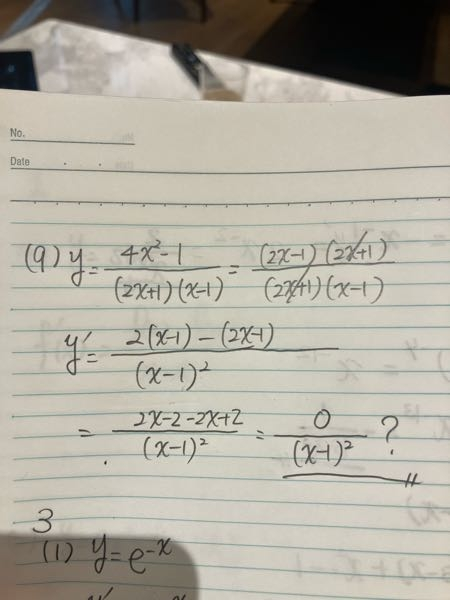 No.
Date . .
(9) y = \frac{4x^2-1}{(2x+1)(x-1)} = \frac{(2x-1)(2x+1)}{(2x+1)(x-1)}
y' = \frac{2(x-1)-(2x-1)}{(x-1)^2}
= \frac{2x-2-2x+2}{(x-1)^2} = \frac{0}{(x-1)^2} ?
3
(1) y = e^{-x}